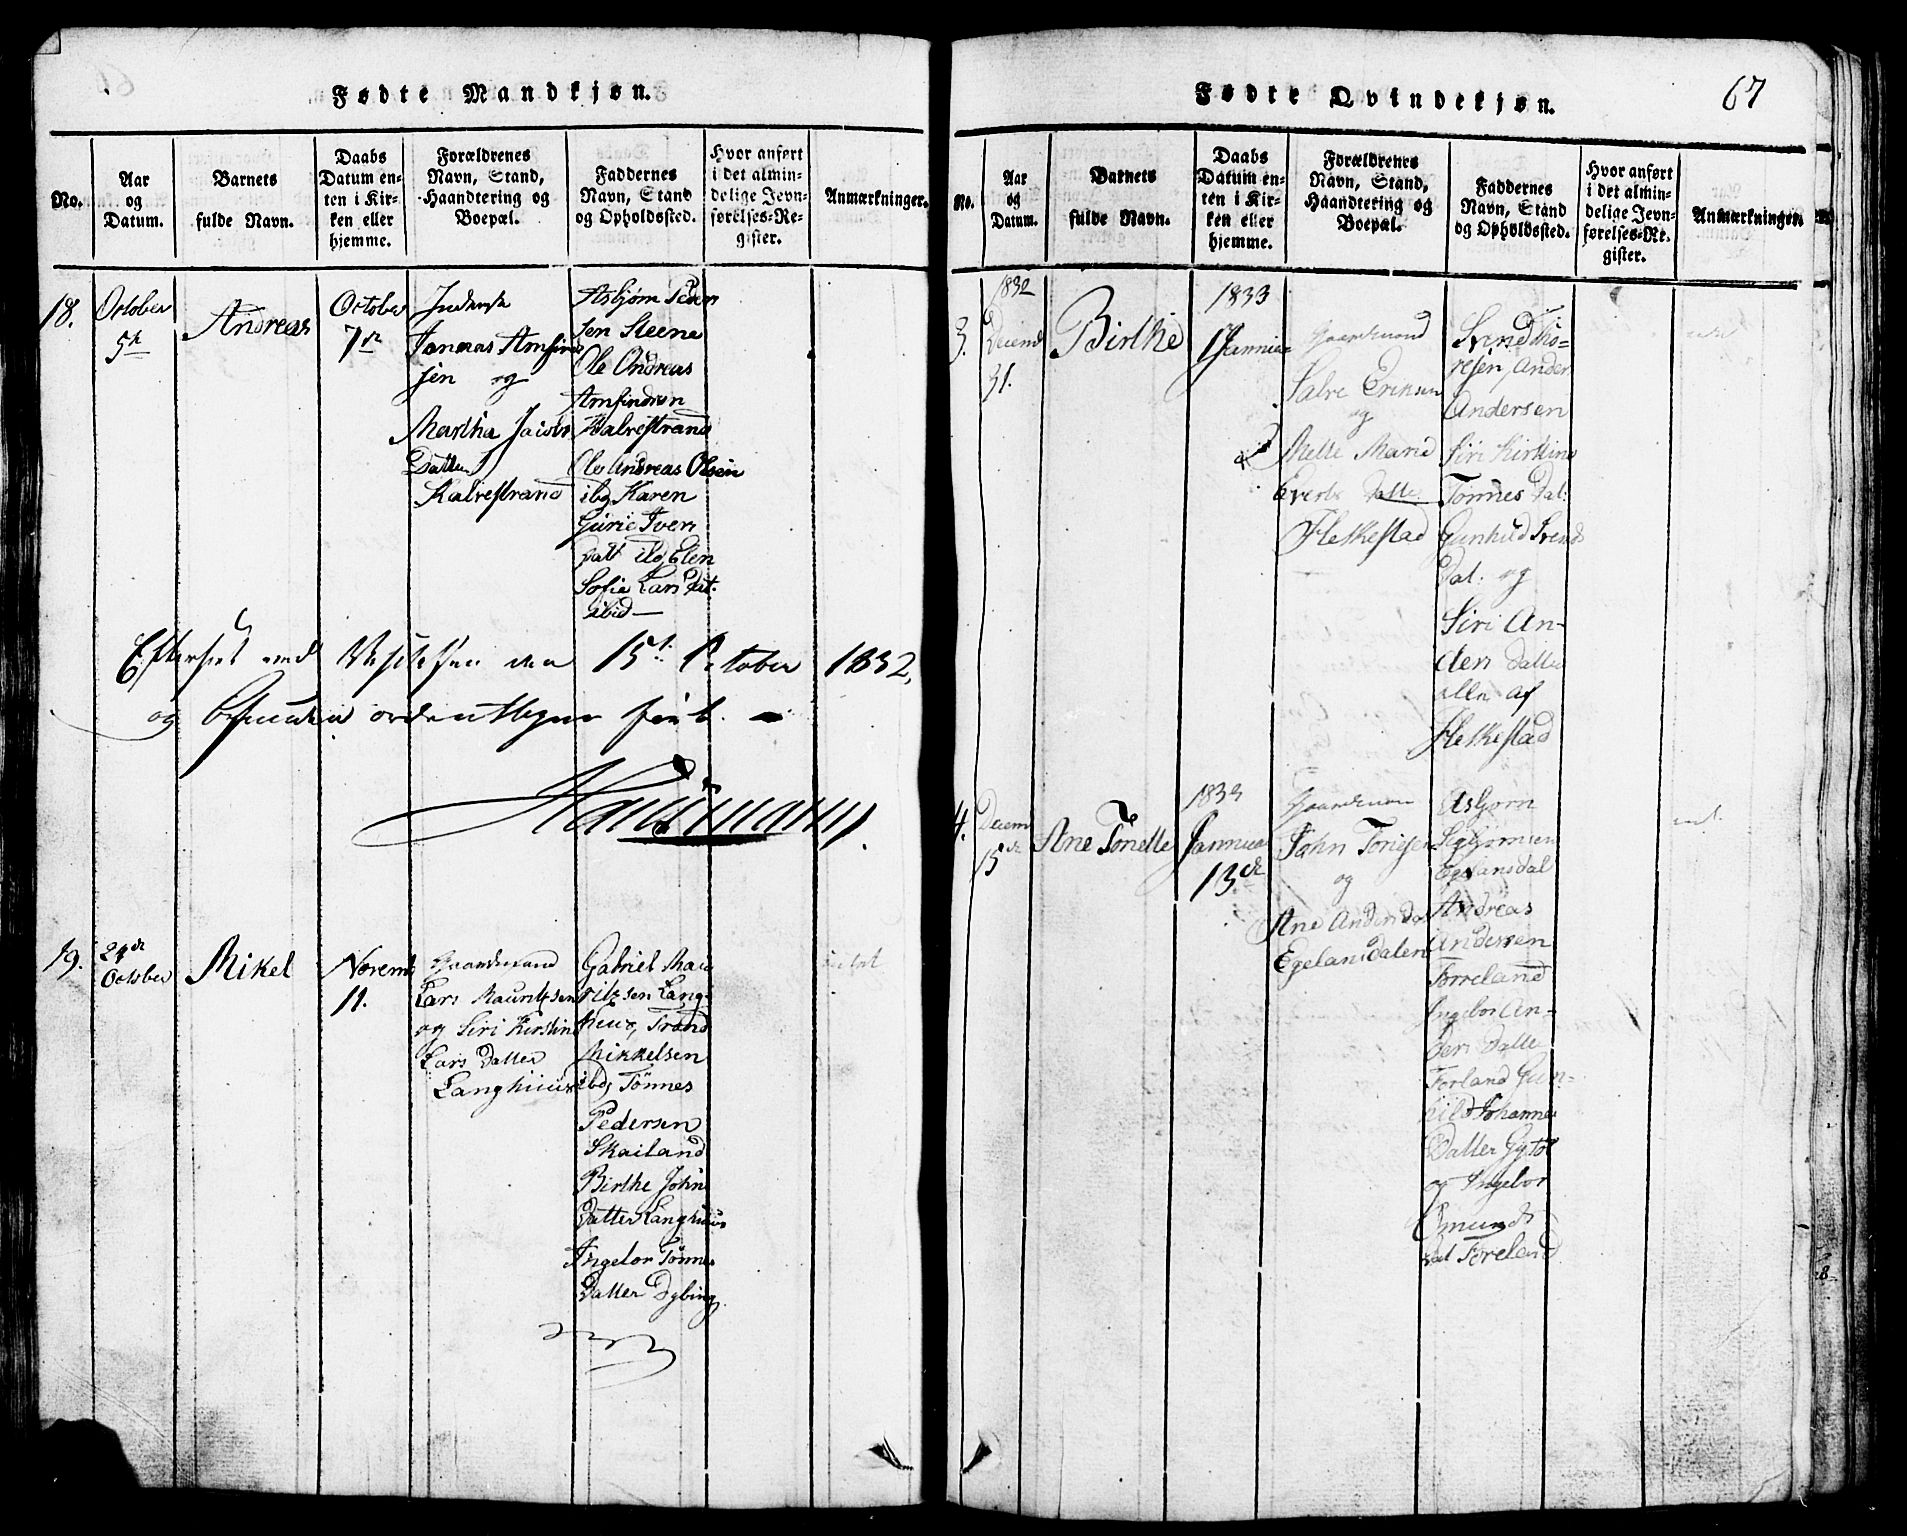 Fødte Mandkjøn.
No.
Aar
og
Datum.
Barnets
fulde Navn.
Daabs
Datum en-
ten i Kir-
ken eller
hjemme.
Forældrenes
Navn, Stand,
Haandtering og
Boepæl.
Faddernes
Navn, Stand
og Opholdssted.
Hvor anført
i det almin-
delige Jevn-
førelses-Re-
gister.
Anmærkninger.
18.
October
5te
Andreas
October
7de
Inderst
Jonas
sen og
Martha Jacobs
Datter
Kalvestrand
Asbjørn Peder
sen Steene
Ole Andreas
Kalvestrand
Ole Andreas Olsen
ibd Karen
Gurie Iver
datt ibd Elen
Sofie Lars Dat.
ibid
Efterseet ved Visitasen den 15t October 1832,
og befunden ordentligen ført.
19.
24de
October
Mikel
Novemb
11.
Gaardmand
Lars Mauritzsen
og Siri Kirstine
Lars Datter
Langhuus
Gabriel Mau
ritzsen Lang-
huus, Trond
Mikkelsen
ibd, Tönnes
Pedersen
Skailand
Birthe John
Datter Langhuus
Ingebor Tönnes
Datter Dybing
Fødte Qvindekjøn.
67
No.
Aar
og
Datum.
Barnets
fulde Navn.
Daabs
Datum en-
ten i Kir-
ken eller
hjemme.
Forældrenes
Navn, Stand,
Haandtering og
Boepæl.
Faddernes
Navn, Stand
og Opholdssted.
Hvor anført
i det almin-
delige Jevn-
førelses-Re-
gister.
Anmærkninger.
3.
1832
Decemb
31.
Birthe
1833
1 Januar
Gaardmand
Salve Eriksen
og
Mette Marie
Everts Datte
Fleskestad
Svend Tho-
resen, Ander
Andersen
Siri Kirstine
Tønnes Dat:
Gunhild Svends
Dat: og
Siri An-
ders Datter
alle af
Fleskestad
4.
Decem
15de
Ane Tönette
1833
Januar
13de
Gaardman
John Toriesen
og
Ane Anders Da
Egelandsdalen
Asbjørn
Asbjørnsen
Egelansdal
Andreas
Andersen
Forreland
Ingebor An-
ders Datte
Forland Gun-
hild Johannes
Datter
og Ingebor
Omunds
Dat Foreland